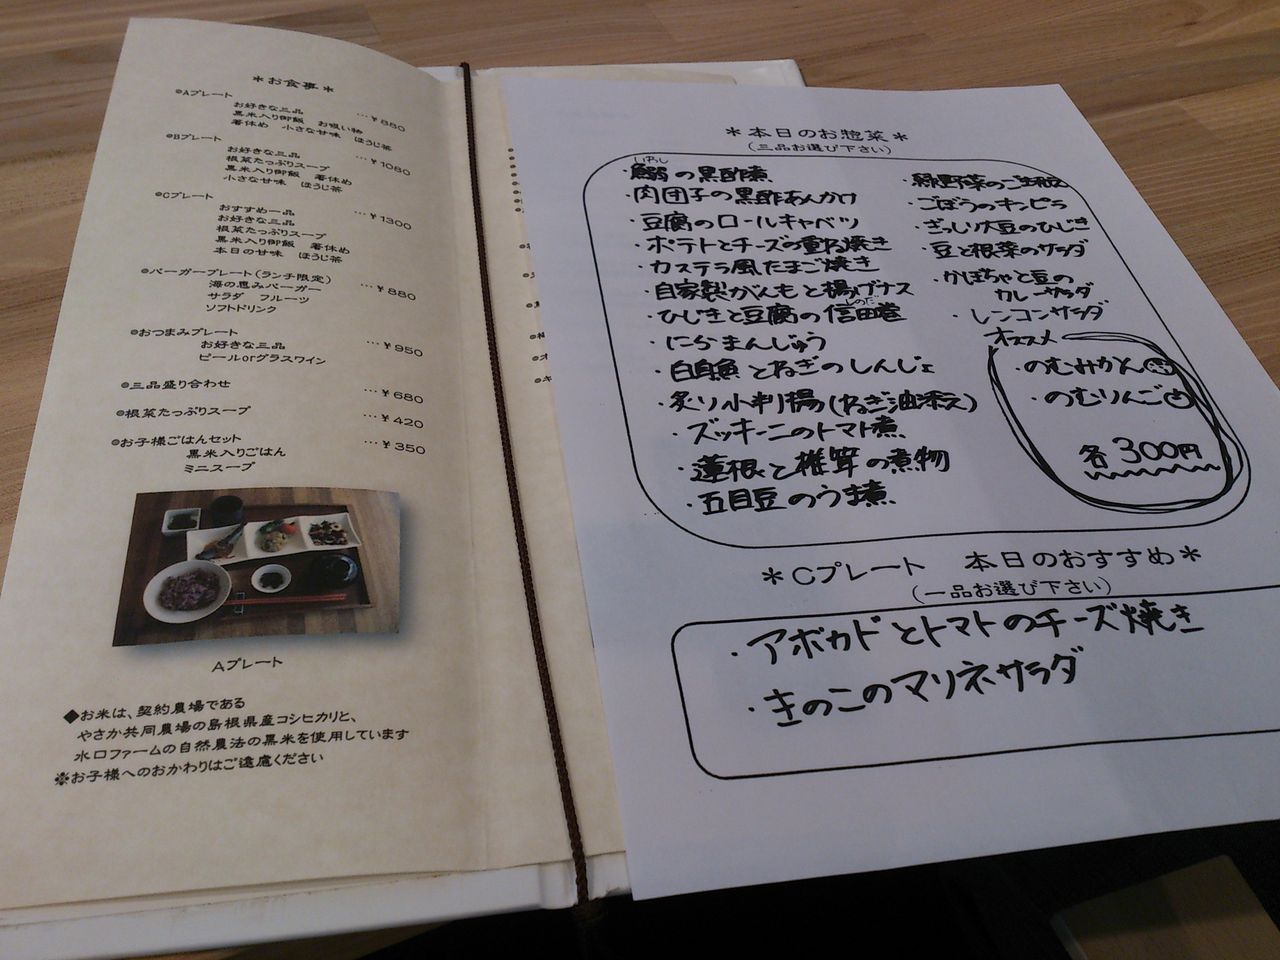 ＊お食事＊
◎Aプレート
お好きな三品 …￥880
黒米入り御飯 お吸い物
箸休め 小さな甘味 ほうじ茶
◎Bプレート
お好きな三品 …￥1080
根菜たっぷりスープ
黒米入り御飯 箸休め
小さな甘味 ほうじ茶
◎Cプレート
おすすめ一品 …￥1300
お好きな三品
根菜たっぷりスープ
黒米入り御飯 箸休め
本日の甘味 ほうじ茶
◎バーガープレート(ランチ限定)
海の恵みバーガー …￥880
サラダ フルーツ
ソフトドリンク
◎おつまみプレート
お好きな三品 …￥950
ビールorグラスワイン
◎三品盛り合わせ …￥680
◎根菜たっぷりスープ …￥420
◎お子様ごはんセット …￥350
黒米入りごはん
ミニスープ
Aプレート
◆お米は、契約農場である
やさか共同農場の島根県産コシヒカリと、
水口ファームの自然農法の黒米を使用しています
※お子様へのおかわりはご遠慮ください
＊本日のお惣菜＊
(三品お選び下さい)
いわし
・鰯の黒酢煮
・肉団子の黒酢あんかけ
・豆腐のロールキャベツ
・ポテトとチーズの重ね焼き
・カステラ風たまご焼き
・自家製がんもと揚げナス
しのだ
・ひじきと豆腐の信田巻
・にらまんじゅう
・白身魚とねぎのしんじょ
・炙り小判揚(ねぎ油添え)
・ズッキーニのトマト煮
・蓮根と椎茸の煮物
・五目豆のうま煮
・緑野菜のごま和え
・ごぼうのキンピラ
・ぎっしり大豆のひじき
・豆と根菜のサラダ
・かぼちゃと豆の
カレーサラダ
・レンコンサラダ
オススメ
・のむみかん
・のむりんご
各300円
＊Cプレート 本日のおすすめ＊
(一品お選び下さい)
・アボカドとトマトのチーズ焼き
・きのこのマリネサラダ